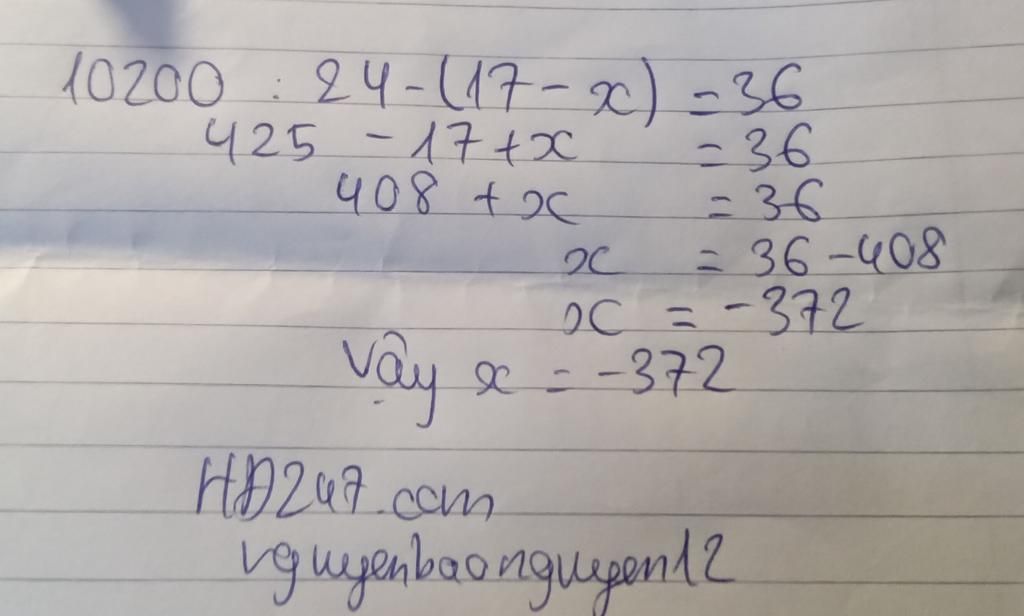 10200 : 24 - (17 - x) = 36
425 - 17 + x = 36
408 + x = 36
x = 36 - 408
x = -372
Vậy x = -372
HĐ247.com
vguyenbaonguyen12